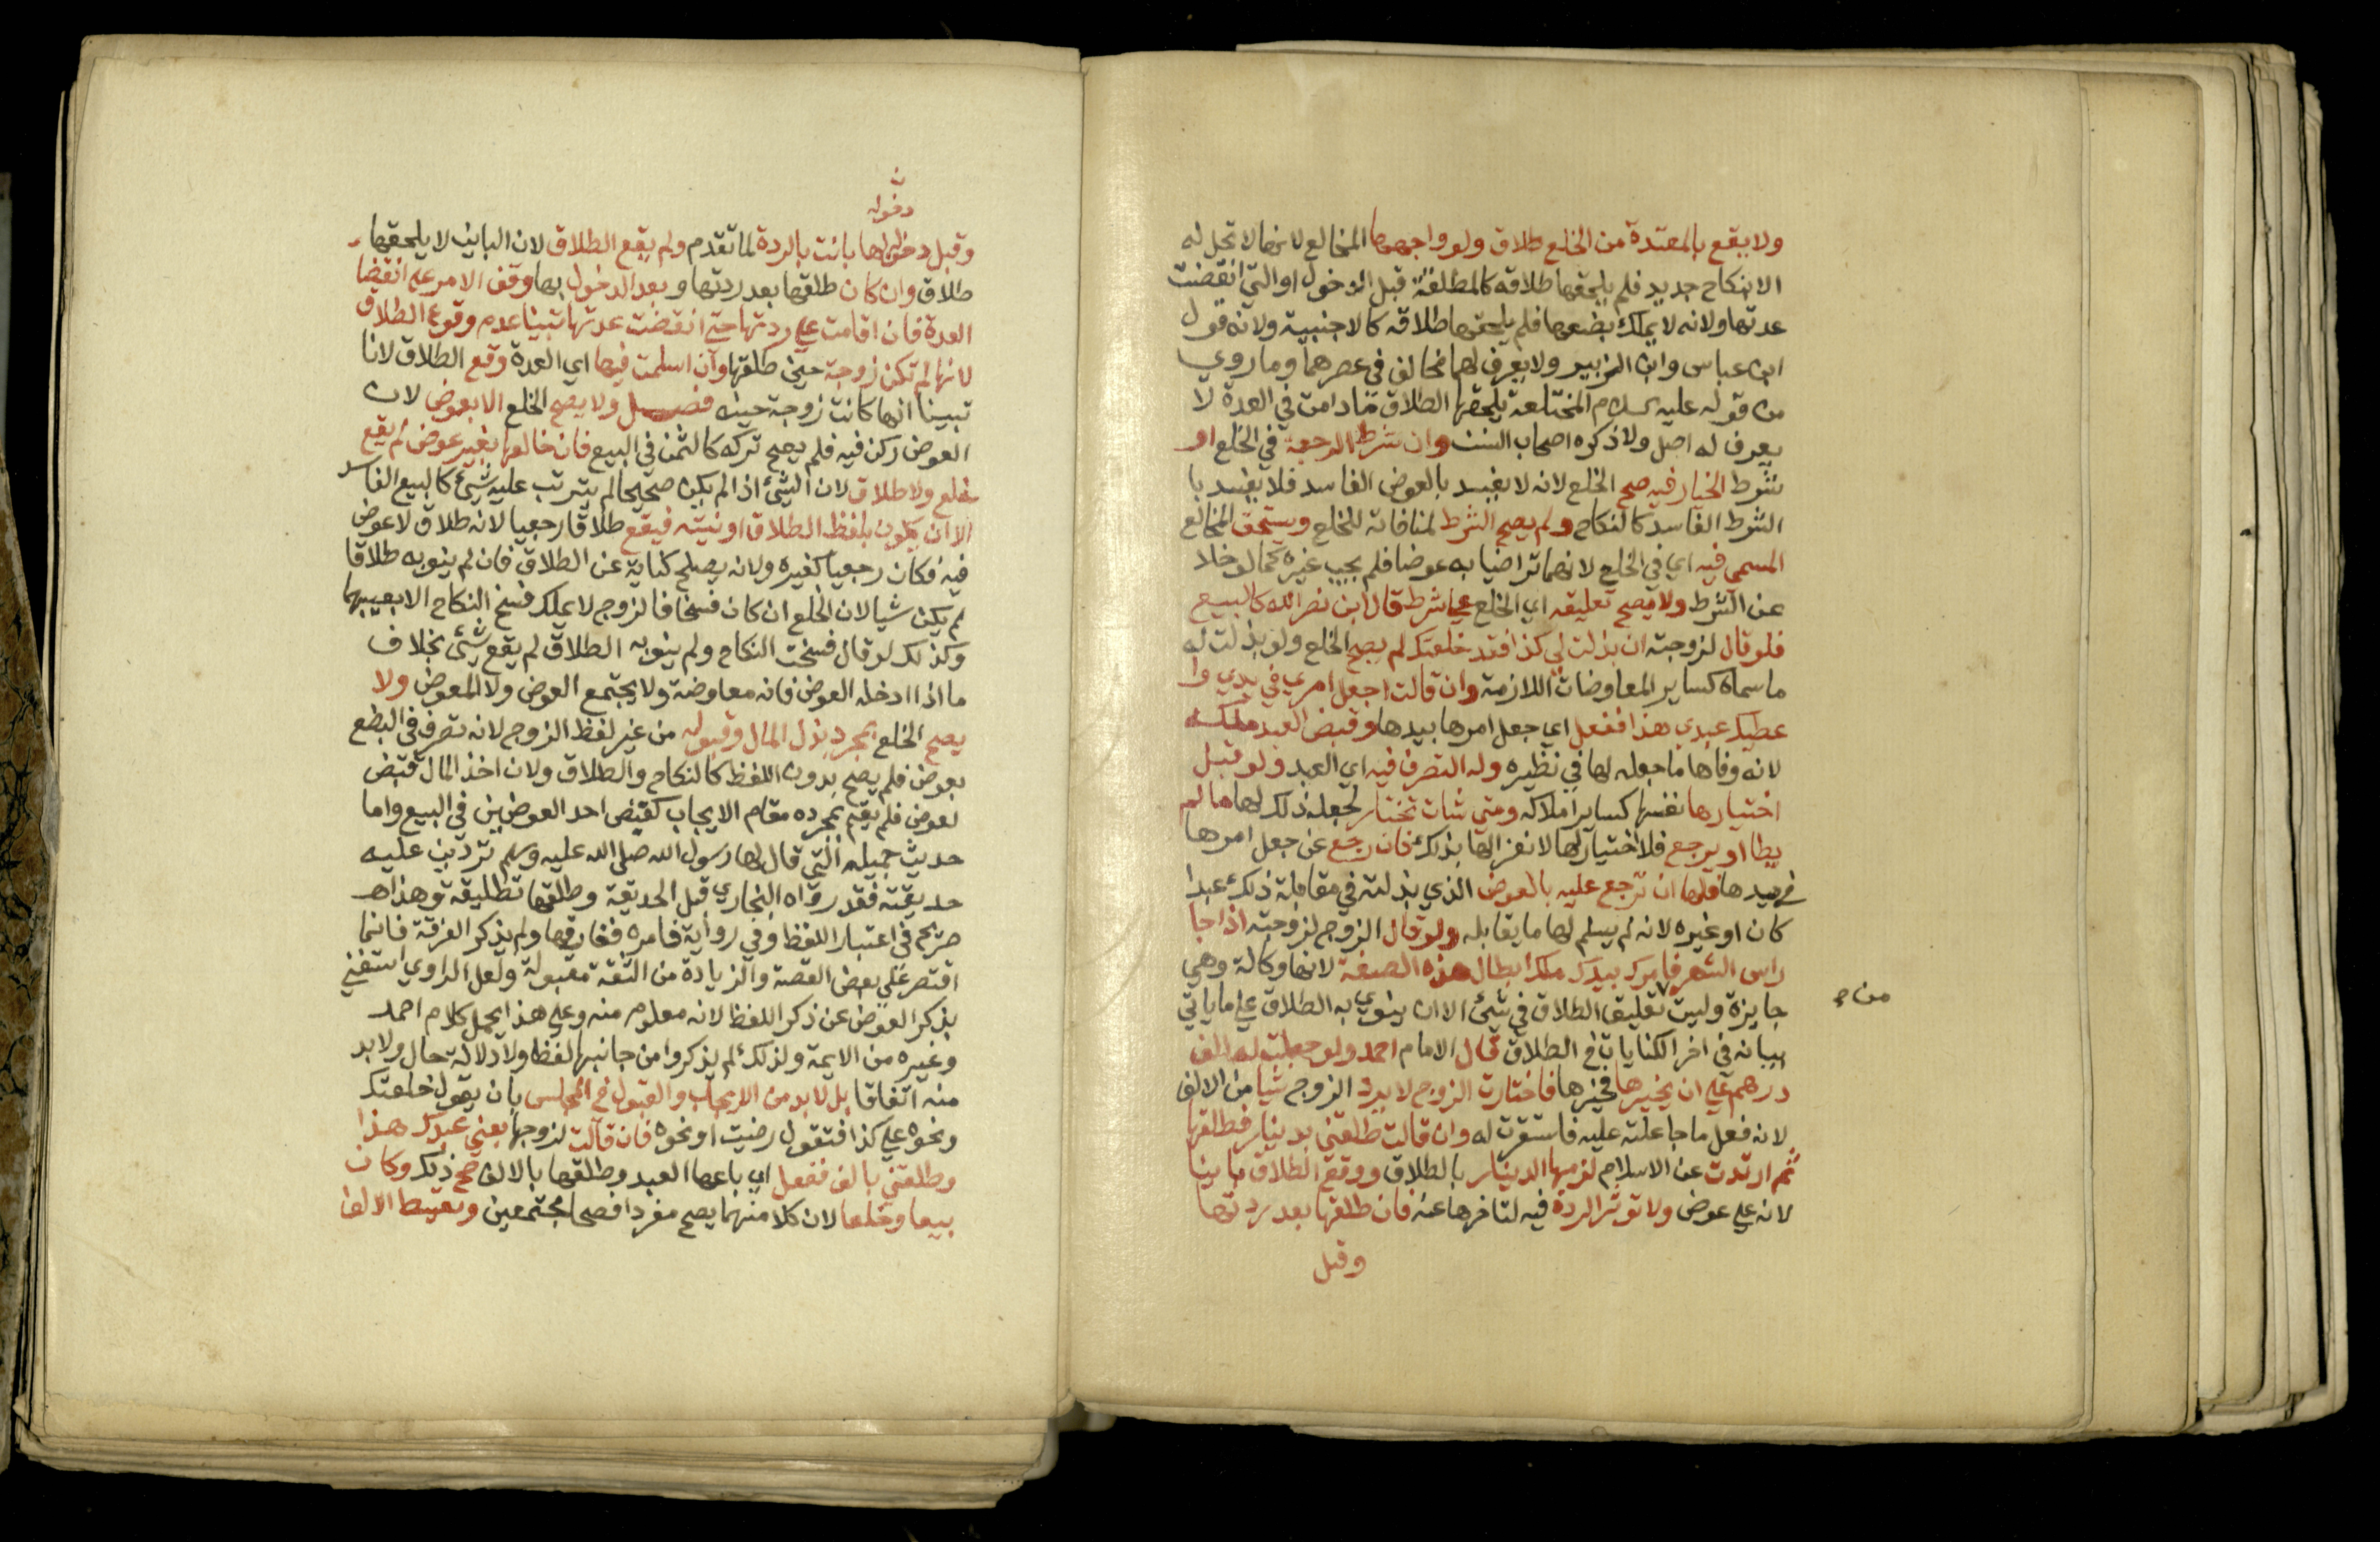 ولا يقع بالمعتدة من الخلع طلاق ولو واجهها المخالع لانها لا تحل له
الا بنكاح جديد فلم يلحقها طلاقه كالمطلقة قبل الدخول او التي انقضت
عدتها ولانه لا يملك بضعها فلم يلحقها طلاقه كالاجنبية ولانه قول
ابن عباس وابن الزبير ولا يعرف لهما مخالف في عصرهما وما روي
من قوله عليه السلام المختلعة يلحقها الطلاق ما دامت في العدة لا
يعرف له اصل ولا ذكره اصحاب السنن وان شرط الرجعة في الخلع او
شرط الخيار فيه صح الخلع لانه لا يفسد بالعوض الفاسد فلا يفسد با
الشرط الفاسد كالنكاح ولم يصح الشرط لمنافاته للخلع ويستحق المخالع
المسمى فيه اي في الخلع لانهما تراضيا به عوضا فلم يجب غيره كما لو خلا
عن الشرط ولا يصح تعليقه اي الخلع على شرط قال ابن نصر الله كالبيع
فلو قال لزوجته ان بذلت لي كذا فقد خلعتك لم يصح الخلع ولو بذلت له
ما سماه كساير المعاوضات اللازمة وان قالت اجعل امري في يدي وا
عطيك عبدي هذا ففعل اي جعل امرها بيدها وقبض العبد ملكه
لانه وفاها ما جعله لها في نظيره وله التصرف فيه اي العبد ولو قبل
اختيارها نفسها كساير املاكه ومتى شات تختار لجعله ذلك لها ما لم
يطا او يرجع فلا اختيار لها لانعزالها بذلك فان رجع عن جعل امرها
في يدها فلها ان ترجع عليه بالعوض الذي بذلته في مقابلة ذلك عبدا
كان او غيره لانه لم يسلم لها ما يقابله ولو قال الزوج لزوجته اذا جا
راس الشهر فامرك بيدك ملك ابطال هذه الصفة لانها وكالة وهي
جايزة وليست تعليق الطلاق في شئ الا ان ينوي به الطلاق على ما ياتي
من ح
بيانه في اخر الكنايات في الطلاق قال الامام احمد ولو جعلت له الف
درهم على ان يخيرها فخيرها فاختارت الزوج لا يرد الزوج شيا من الالف
لانه فعل ما جاعلته عليه فاستقرت له وان قالت طلقني بدينار فطلقها
ثم ارتدت عن الاسلام لزمها الدينار بالطلاق ووقع الطلاق باينا
لانه على عوض ولا توثر الردة فيه لتاخرها عنه فان طلقها بعد ردتها
وقبل
دخوله
وقبل دخوله بها بانت بالردة لما تقدم ولم يقع الطلاق لان الباين لا يلحقها
طلاق وان كان طلقها بعد ردتها وبعد الدخول بها وقف الامر على انقضا
العدة فان اقامت على ردتها حتى انقضت عدتها تبينا عدم وقوع الطلاق
لانها لم تكن زوجة حين طلقها وان اسلمت فيها اي العدة وقع الطلاق لانا
تبينا انها كانت زوجة حينه فصل ولا يصح الخلع الا بعوض لان
العوض ركن فيه فلم يصح تركه كالثمن في البيع فان خالعها بغير عوض لم يقع
خلع ولا طلاق لان الشئ اذا لم يكن صحيحا لم يترتب عليه شئ كالبيع الفاسد
الا ان يكون بلفظ الطلاق او نيته فيقع طلاقا رجعيا لانه طلاق لا عوض
فيه فكان رجعيا كغيره ولانه يصلح كناية عن الطلاق فان لم ينو به طلاقا
لم يكن شيا لان الخلع ان كان فسخا فالزوج لا يملك فسخ النكاح الا بعيبها
وكذلك لو قال فسخت النكاح ولم ينو به الطلاق لم يقع شئ بخلاف
ما اذا ادخله العوض فانه معاوضة ولا يجتمع العوض ولا المعوض ولا
يصح الخلع بمجرد بذل المال وقبوله من غير لفظ الزوج لانه تصرف في البضع
بعوض فلم يصح بدون اللفظ كالنكاح والطلاق ولان اخذ المال قبض
لعوض فلم يقم بمجرده مقام الايجاب كقبض احد العوضين في البيع واما
حديث جميله التي قال لها رسول الله صلى الله عليه وسلم تردين عليه
حديقته فقد رواه البخاري قبل الحديقة وطلقها تطليقة وهذا هـ
صريح في اعتبار اللفظ وفي رواية فامره ففارقها ولم يذكر الفرقة فانما
اقتصر على بعض القصة والزيادة من الثقة مقبولة ولعل الراوي استغنى
بذكر العوض عن ذكر اللفظ لانه معلوم منه وعلى هذا يحمل كلام احمد
وغيره من الايمة ولذلك لم يذكروا من جانبها لفظا ولا دلالة حال ولا بد
منه اتفاقا بل لا بد من الايجاب والقبول في المجلس بان يقول خلعتك
ونحوه على كذا فتقول رضيت او نحوه فان قالت لزوجها بعني عبدك هذا
وطلقني بالف ففعل اي باعها العبد وطلقها بالالف صح ذلك وكان
بيعا وخلعا لان كلا منهما يصح مفردا فصحا مجتمعين ويقسط الالف